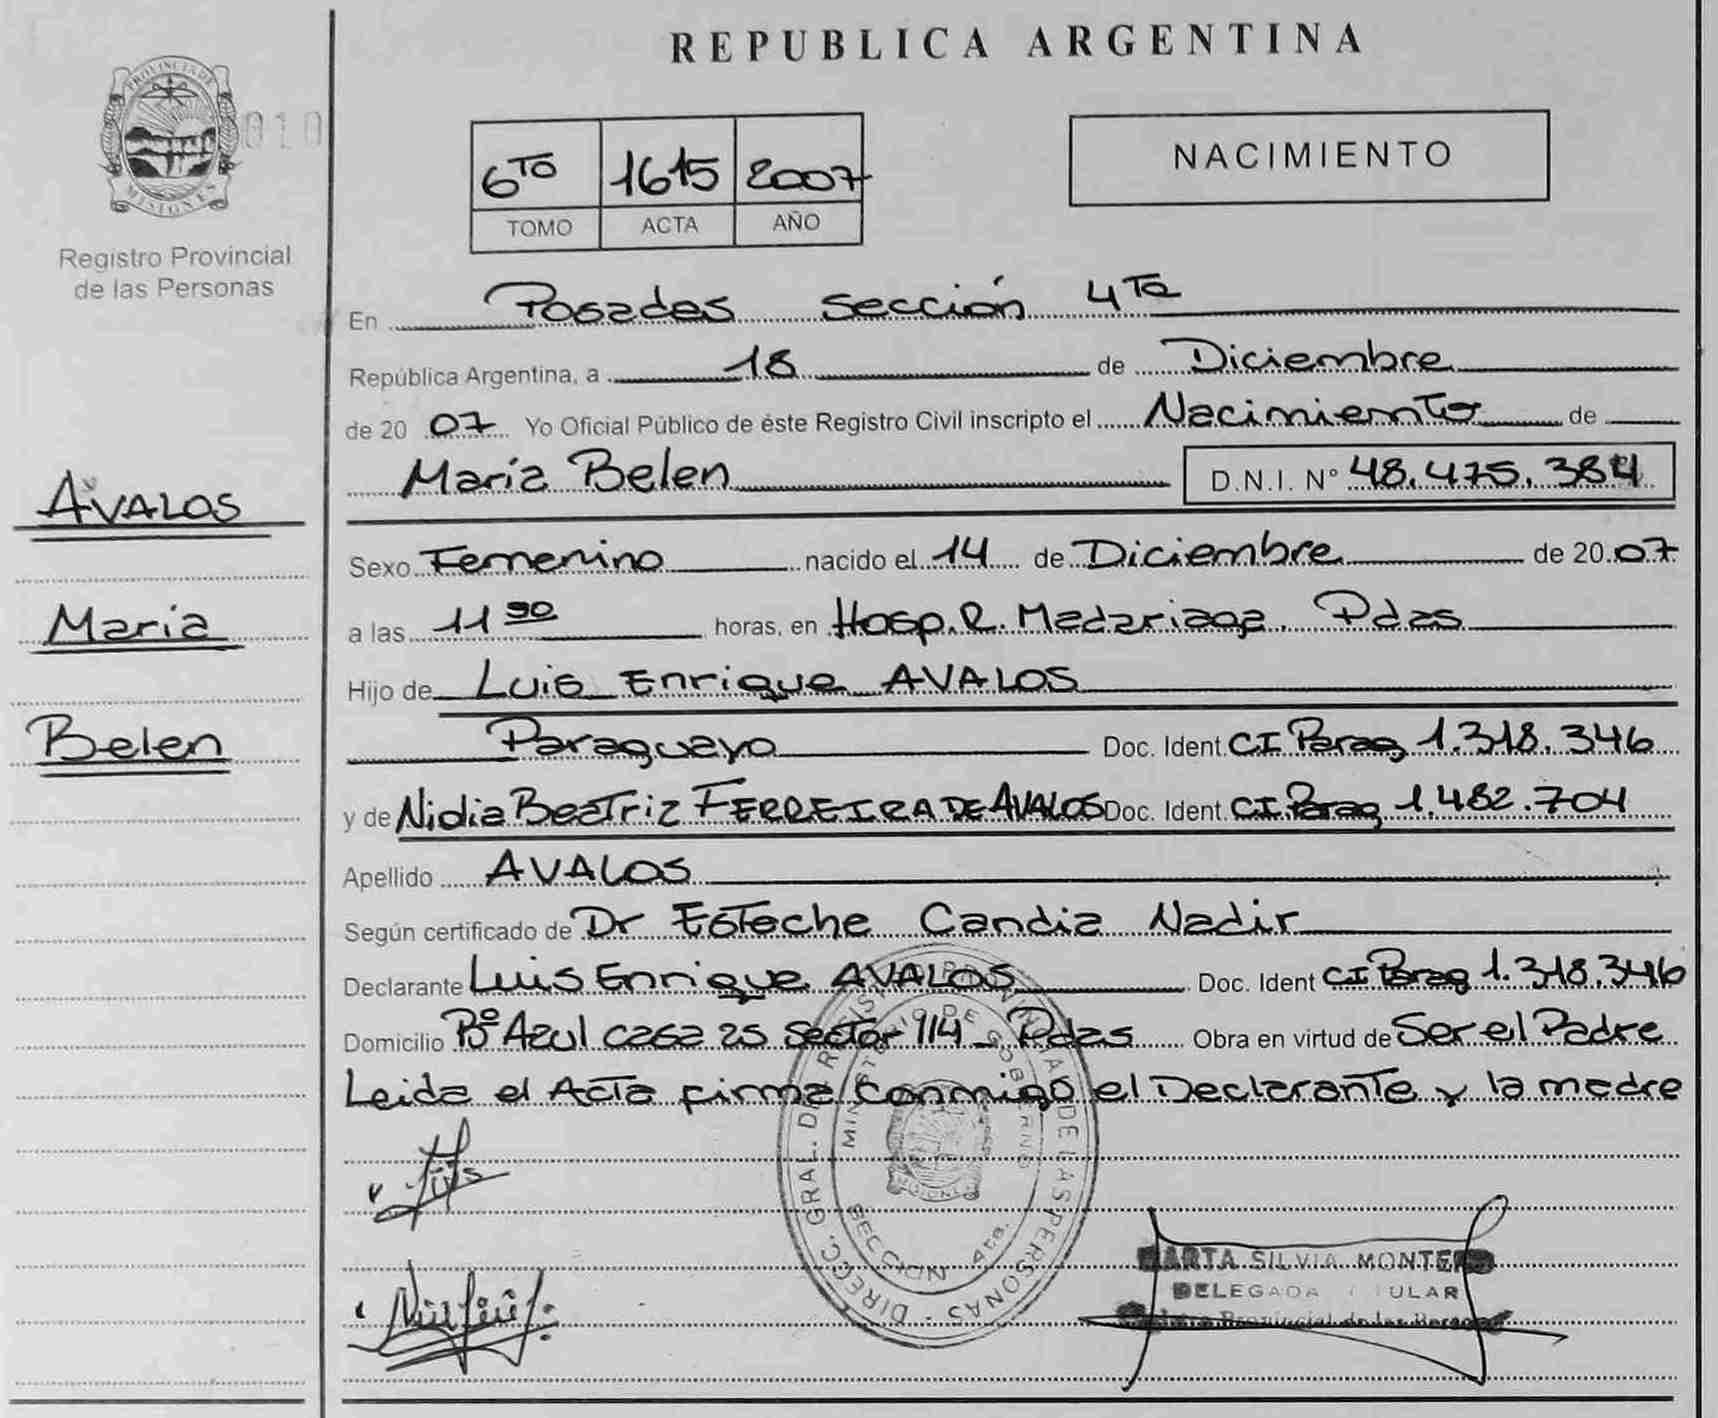 REPUBLICA ARGENTINA
PROVINCIA DE
MISIONES
010
Registro Provincial
de las Personas
6TO 1615 2007
TOMO ACTA AÑO
NACIMIENTO
En Posadas Sección 4Ta
República Argentina, a 18 de Diciembre
de 20 07 Yo Oficial Público de éste Registro Civil inscripto el Nacimiento de
María Belen D.N.I. Nº 48.475.384
AVALOS
María
Belen
Sexo Femenino nacido el 14 de Diciembre de 20 07
a las 11 horas, en Hosp. R. Madariaga. Pdas
Hijo de Luis Enrique AVALOS
Paraguayo Doc. Ident CI Parag 1.318.346
y de Nidia Beatriz FERREIRA DE AVALOS Doc. Ident CI Parag 1.482.704
Apellido AVALOS
Según certificado de Dr Esteche Candia Nadir
Declarante Luis Enrique AVALOS Doc. Ident CI Parag 1.318.346
Domicilio Bº Azul casa 25 Sector 114 - Pdas Obra en virtud de Ser el Padre
Leida el Acta firma conmigo el Declarante y la madre
DIRECC. GRAL. DE REGISTRO PROVINCIAL DE LAS PERSONAS
MINISTERIO DE GOBIERNO
MISIONES
SECCION 4ta.
MARTA SILVIA MONTERO
DELEGADA TITULAR
Provincial de las Personas